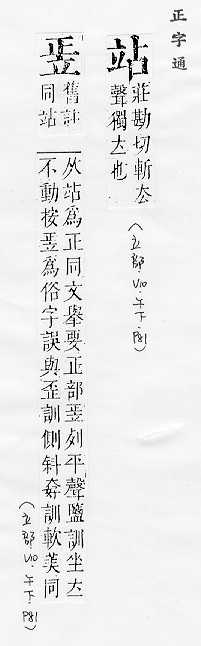 正字通
站
莊勘切斬去
聲獨立也
(立部.V10.午下.P81)
舊註
同站
从站為正同文舉要正部列平聲訓坐立
不動按為俗字誤與歪訓側斜訓軟美同
(立部.V10.午下.P81)